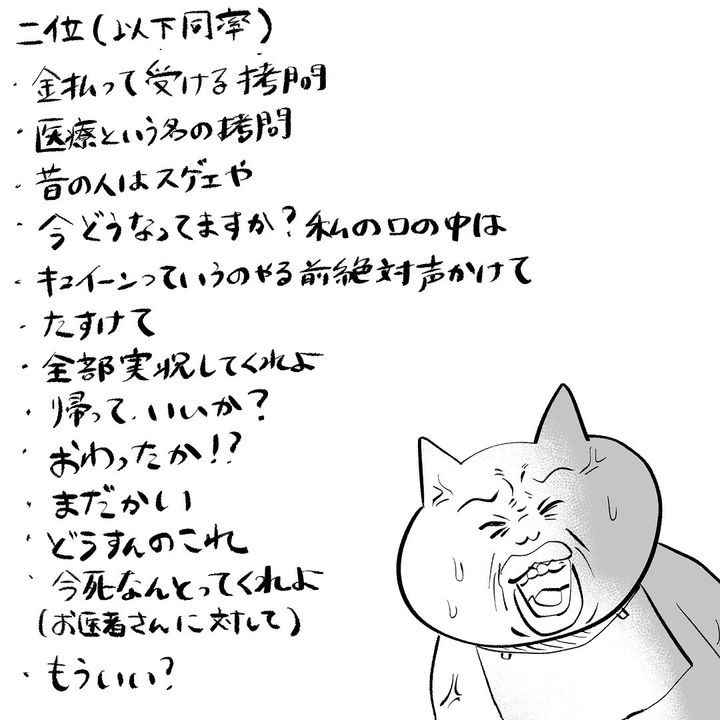 二位(以下同率)
・金払って受ける拷問
・医療という名の拷問
・昔の人はスゲェや
・今どうなってますか?私の口の中は
・キュイーンっていうのやる前絶対声かけて
・たすけて
・全部実況してくれよ
・帰って、いいか?
・おわったか!?
・まだかい
・どうすんのこれ
・今死なんとってくれよ
(お医者さんに対して)
・もういい?